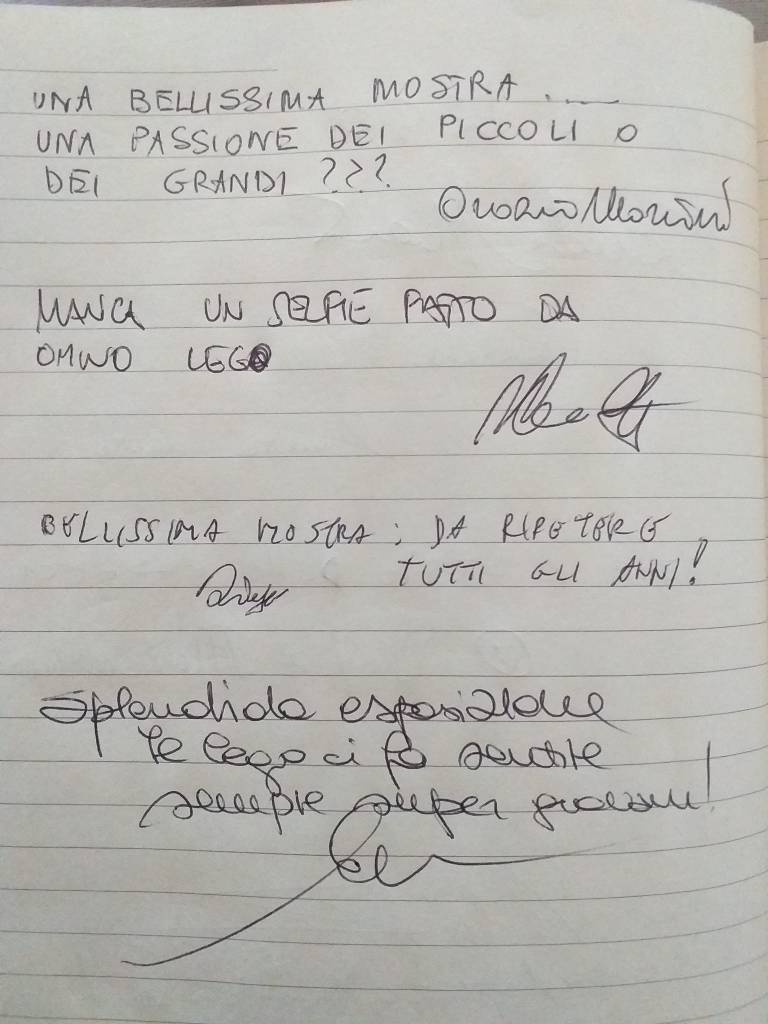 UNA BELLISSIMA MOSTRA .....
UNA PASSIONE DEI PICCOLI O
DEI GRANDI ???
MANCA UN SELFIE FATTO DA
OMINO LEGO
BELLISSIMA MOSTRA; DA RIPETERE
TUTTI GLI ANNI!
Splendida esposizione
le lego ci fa sentire
sempre super giovani!